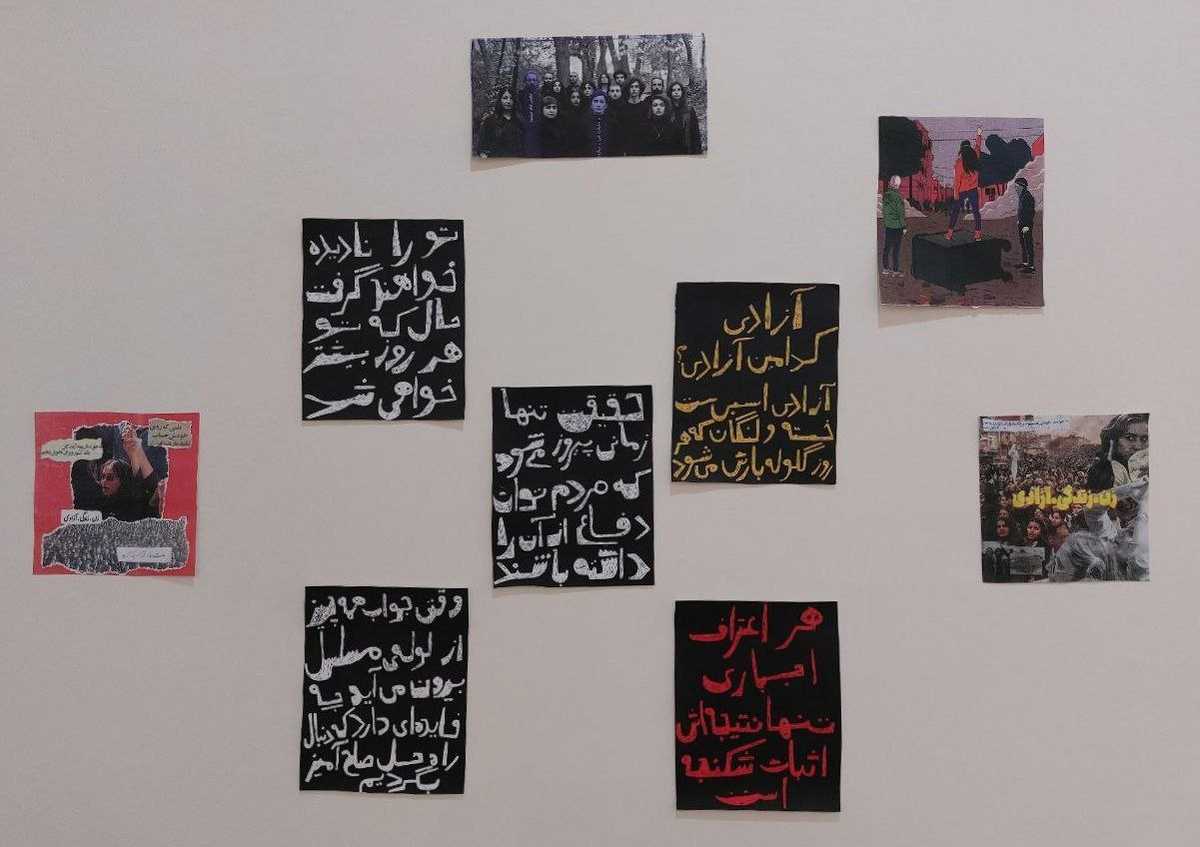 تو را نادیده
خواهند گرفت
حال که تو
هر روز بیشتر
خواهی شد
آزادی
کدامین آزادی؟
آزادی اسبی ست
خسته و لنگان که هر
روز گلوله بارش می‌شود
حقیقت تنها
زمانی پیروز می‌شود
که مردم توان
دفاع از آن را
داشته باشند
زن، زندگی، آزادی
زن، زندگی، آزادی
وقتی جواب همه چیز
از لوله‌ی مسلسل
بیرون می‌آید چه
فایده‌ای دارد که دنبال
راه حل صلح آمیز
بگردیم
هر اعتراف
اجباری
تنها نتیجه‌اش
اثبات شکنجه
است